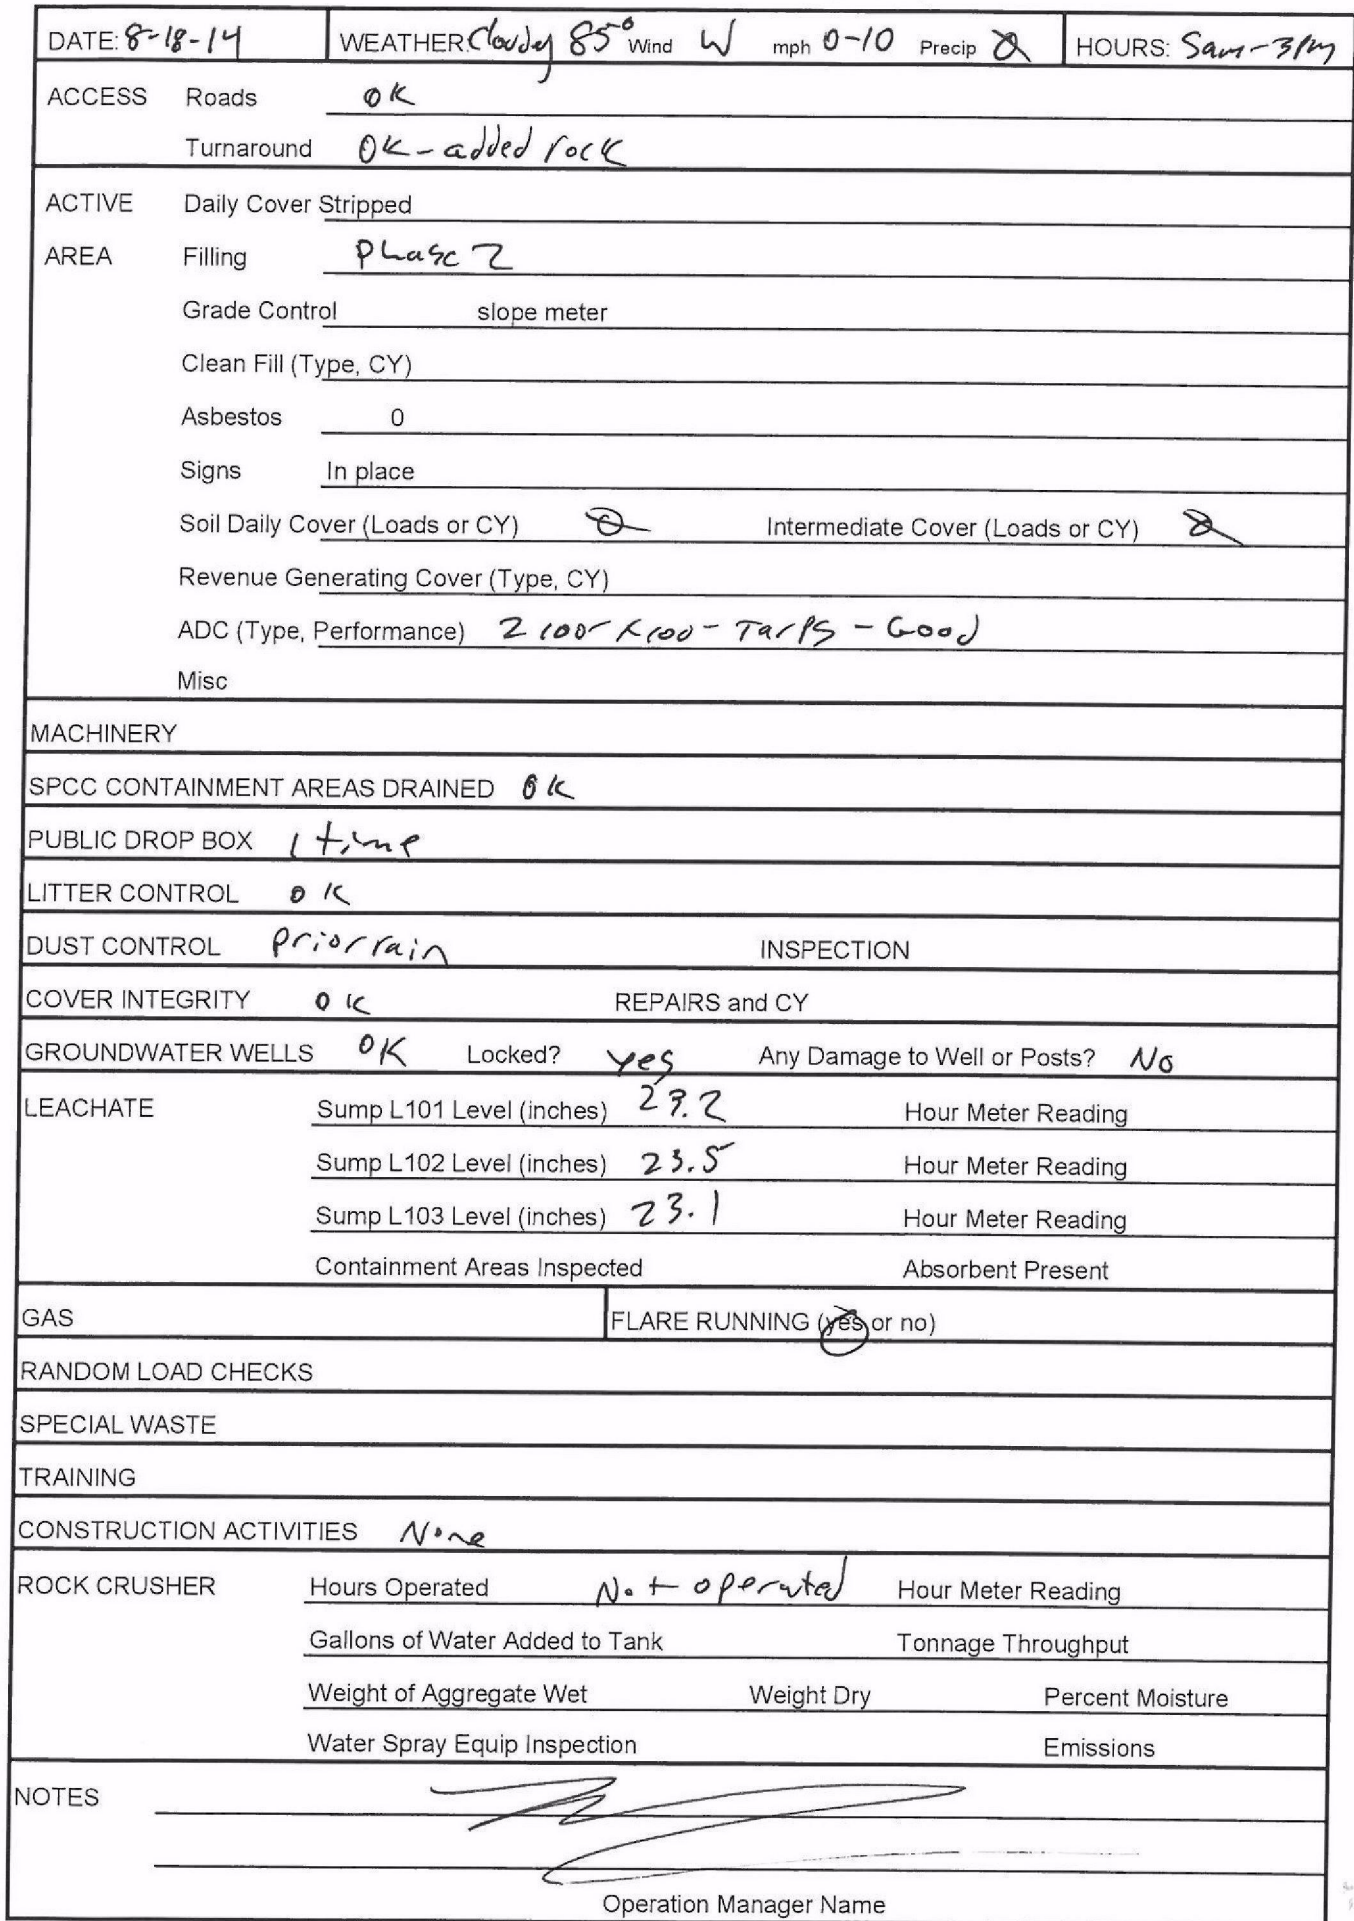 DATE: 8-18-14 WEATHER: Cloudy 85° Wind W mph 0-10 Precip Ø HOURS: 5am-3pm
ACCESS Roads OK
Turnaround OK-added rock
ACTIVE Daily Cover Stripped
AREA Filling Phase 2
Grade Control slope meter
Clean Fill (Type, CY)
Asbestos 0
Signs In place
Soil Daily Cover (Loads or CY) Ø Intermediate Cover (Loads or CY) Ø
Revenue Generating Cover (Type, CY)
ADC (Type, Performance) 2 100 x 100 - Tarps - Good
Misc
MACHINERY
SPCC CONTAINMENT AREAS DRAINED OK
PUBLIC DROP BOX 1 time
LITTER CONTROL OK
DUST CONTROL prior rain INSPECTION
COVER INTEGRITY OK REPAIRS and CY
GROUNDWATER WELLS OK Locked? yes Any Damage to Well or Posts? No
LEACHATE Sump L101 Level (inches) 23.2 Hour Meter Reading
Sump L102 Level (inches) 23.5 Hour Meter Reading
Sump L103 Level (inches) 23.1 Hour Meter Reading
Containment Areas Inspected Absorbent Present
GAS FLARE RUNNING (yes or no)
RANDOM LOAD CHECKS
SPECIAL WASTE
TRAINING
CONSTRUCTION ACTIVITIES None
ROCK CRUSHER Hours Operated Not operated Hour Meter Reading
Gallons of Water Added to Tank Tonnage Throughput
Weight of Aggregate Wet Weight Dry Percent Moisture
Water Spray Equip Inspection Emissions
NOTES
Operation Manager Name